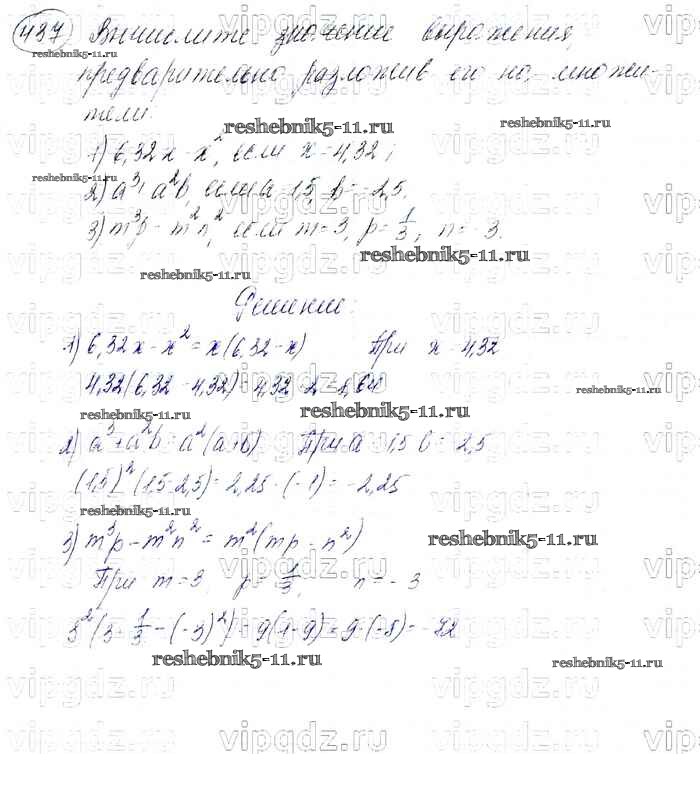 437 Вычислите значение выражения,
предварительно разложив его на множи-
тели.
1) 6,32x - x², если x = 4,32;
2) a³ + a²b, если a = 1,5, b = -2,5.
3) m³p - m²n², если m = 3, p = 1/3, n = -3.
Решение:
1) 6,32x - x² = x(6,32 - x) При x = 4,32
4,32(6,32 - 4,32) = 4,32 · 2 = 8,64
2) a³ + a²b = a²(a + b) При a = 1,5 b = -2,5
(1,5)² (1,5 - 2,5) = 2,25 · (-1) = -2,25
3) m³p - m²n² = m²(mp - n²)
При m = 3, p = 1/3, n = -3
3²(3 · 1/3 - (-3)²) = 9(1 - 9) = 9 · (-8) = -72
reshebnik5-11.ru
vipgdz.ru